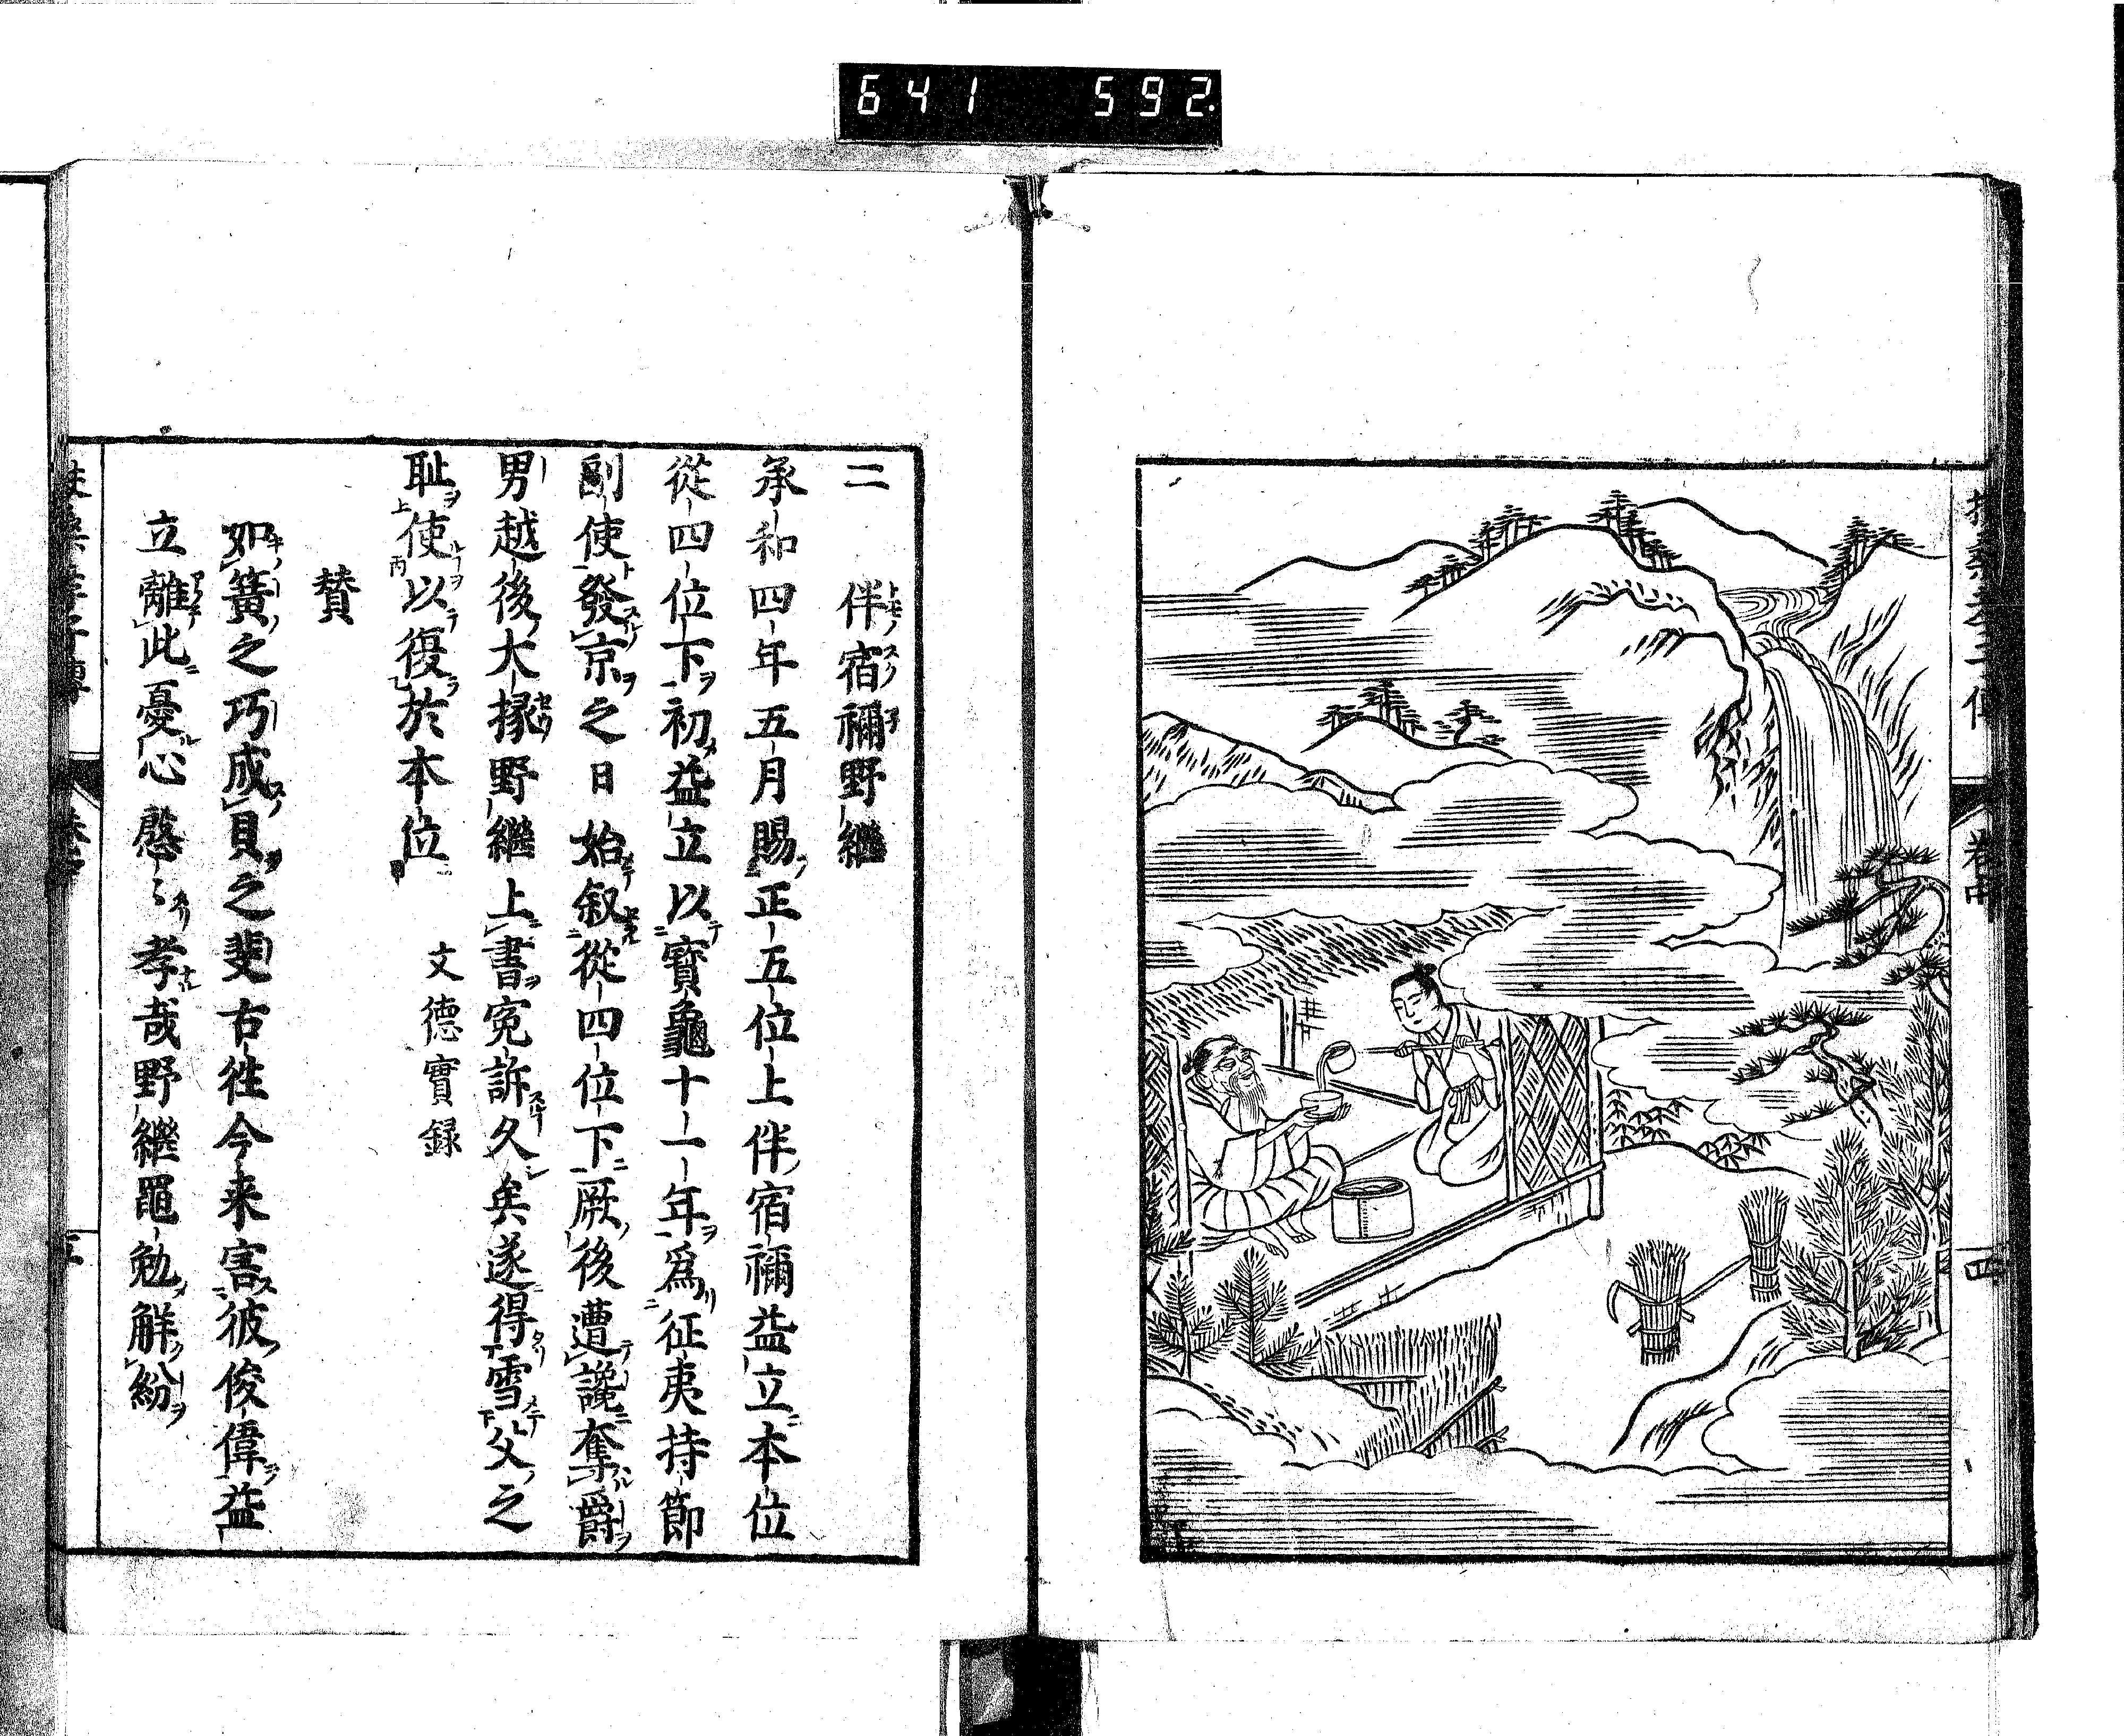 641 592
巻中
四
二 伴宿禰野繼
承和四年五月賜正五位上伴宿禰益立本位
從四位下初益立以寶龜十一年爲征夷持節
副使發京之日始叙從四位下厥後遭讒奪爵
男越後大掾野繼上書寃訴久矣遂得雪父之
耻使以復於本位 文德實録
賛
如簧之巧成貝之斐古往今来害彼俊偉益
立離此憂心慇〻孝哉野繼黽勉解紛